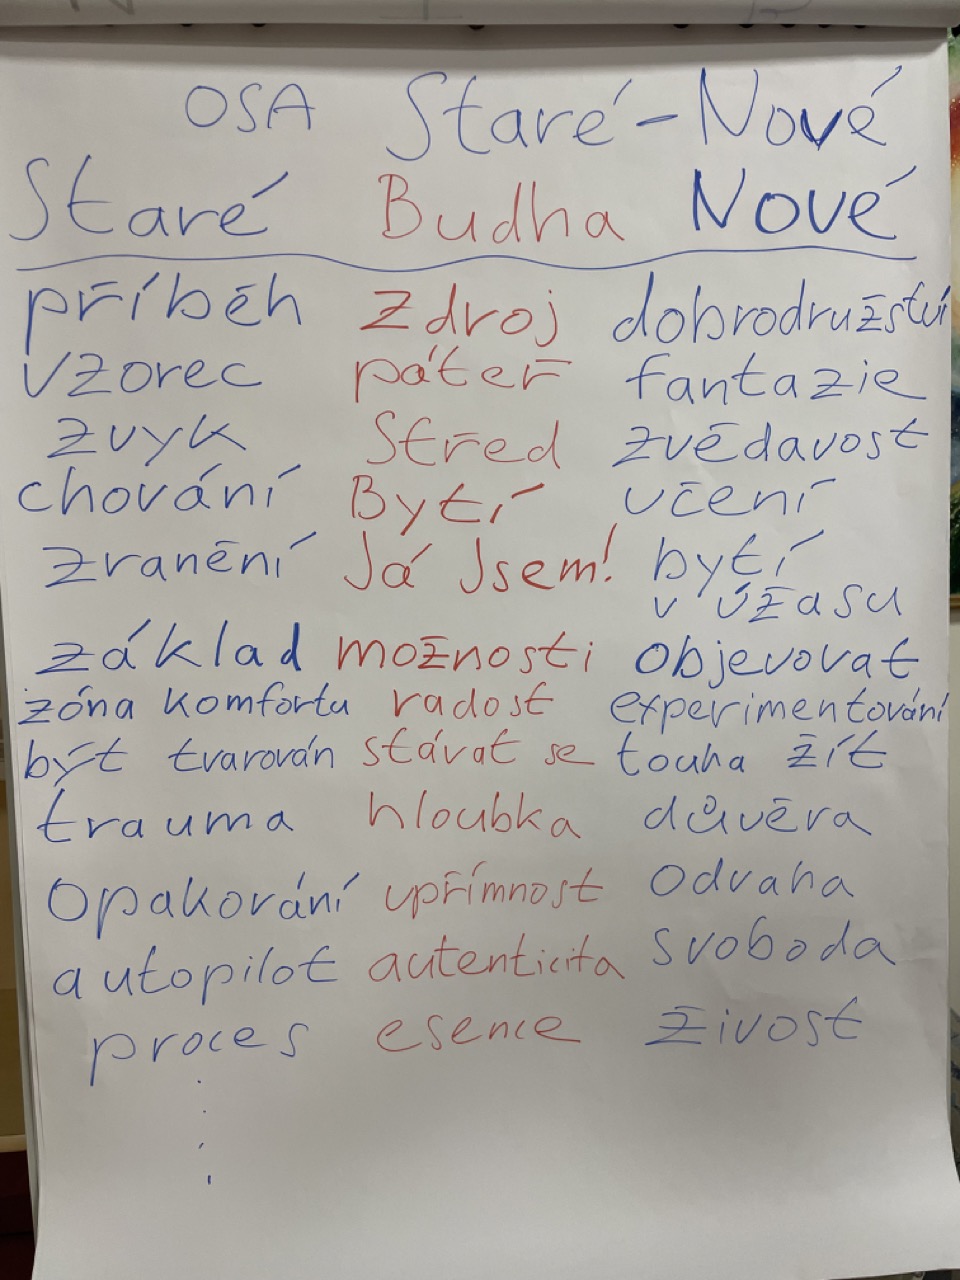 OSA Staré-Nové
Staré Budha Nové
příběh zdroj dobrodružství
vzorec páteř fantazie
zvyk Střed zvědavost
chování Bytí učení
zranění Já Jsem! bytí
v úžasu
základ možnosti objevovat
zóna komfortu radost experimentování
být tvarován stávat se touha žít
trauma hloubka důvěra
Opakování upřímnost Odvaha
autopilot autenticita svoboda
proces esence živost